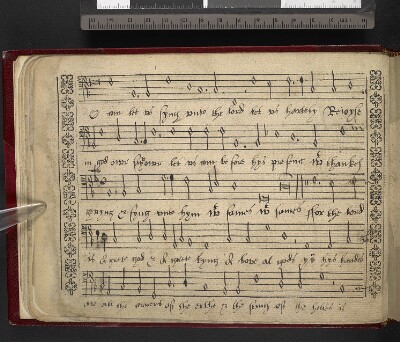 O com let vs syng vnto the lord let vs hartely Reioyse
in god owr let vs com be fore hys presens wt thankes
gyving & syng vnto hym wt sames wt sames ffor the lord
is a grete god & a grete kyng a bove al gods yn hys handes
are all the corners of the erthe & the of the hilles is